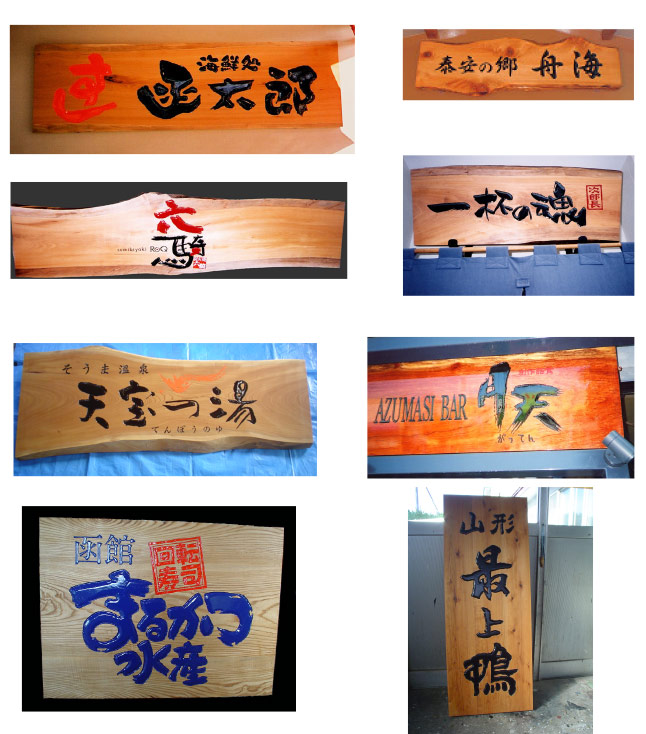 すし
海鮮処
函太郎
泰安の郷 舟海
六騎
sumibiyaki ROQ
一杯の魂
次郎長
そうま温泉
天宝の湯
てんぽうのゆ
AZUMASI BAR
月天
がってん
函館
回転寿司
まるかつ
水産
山形
最上鴨